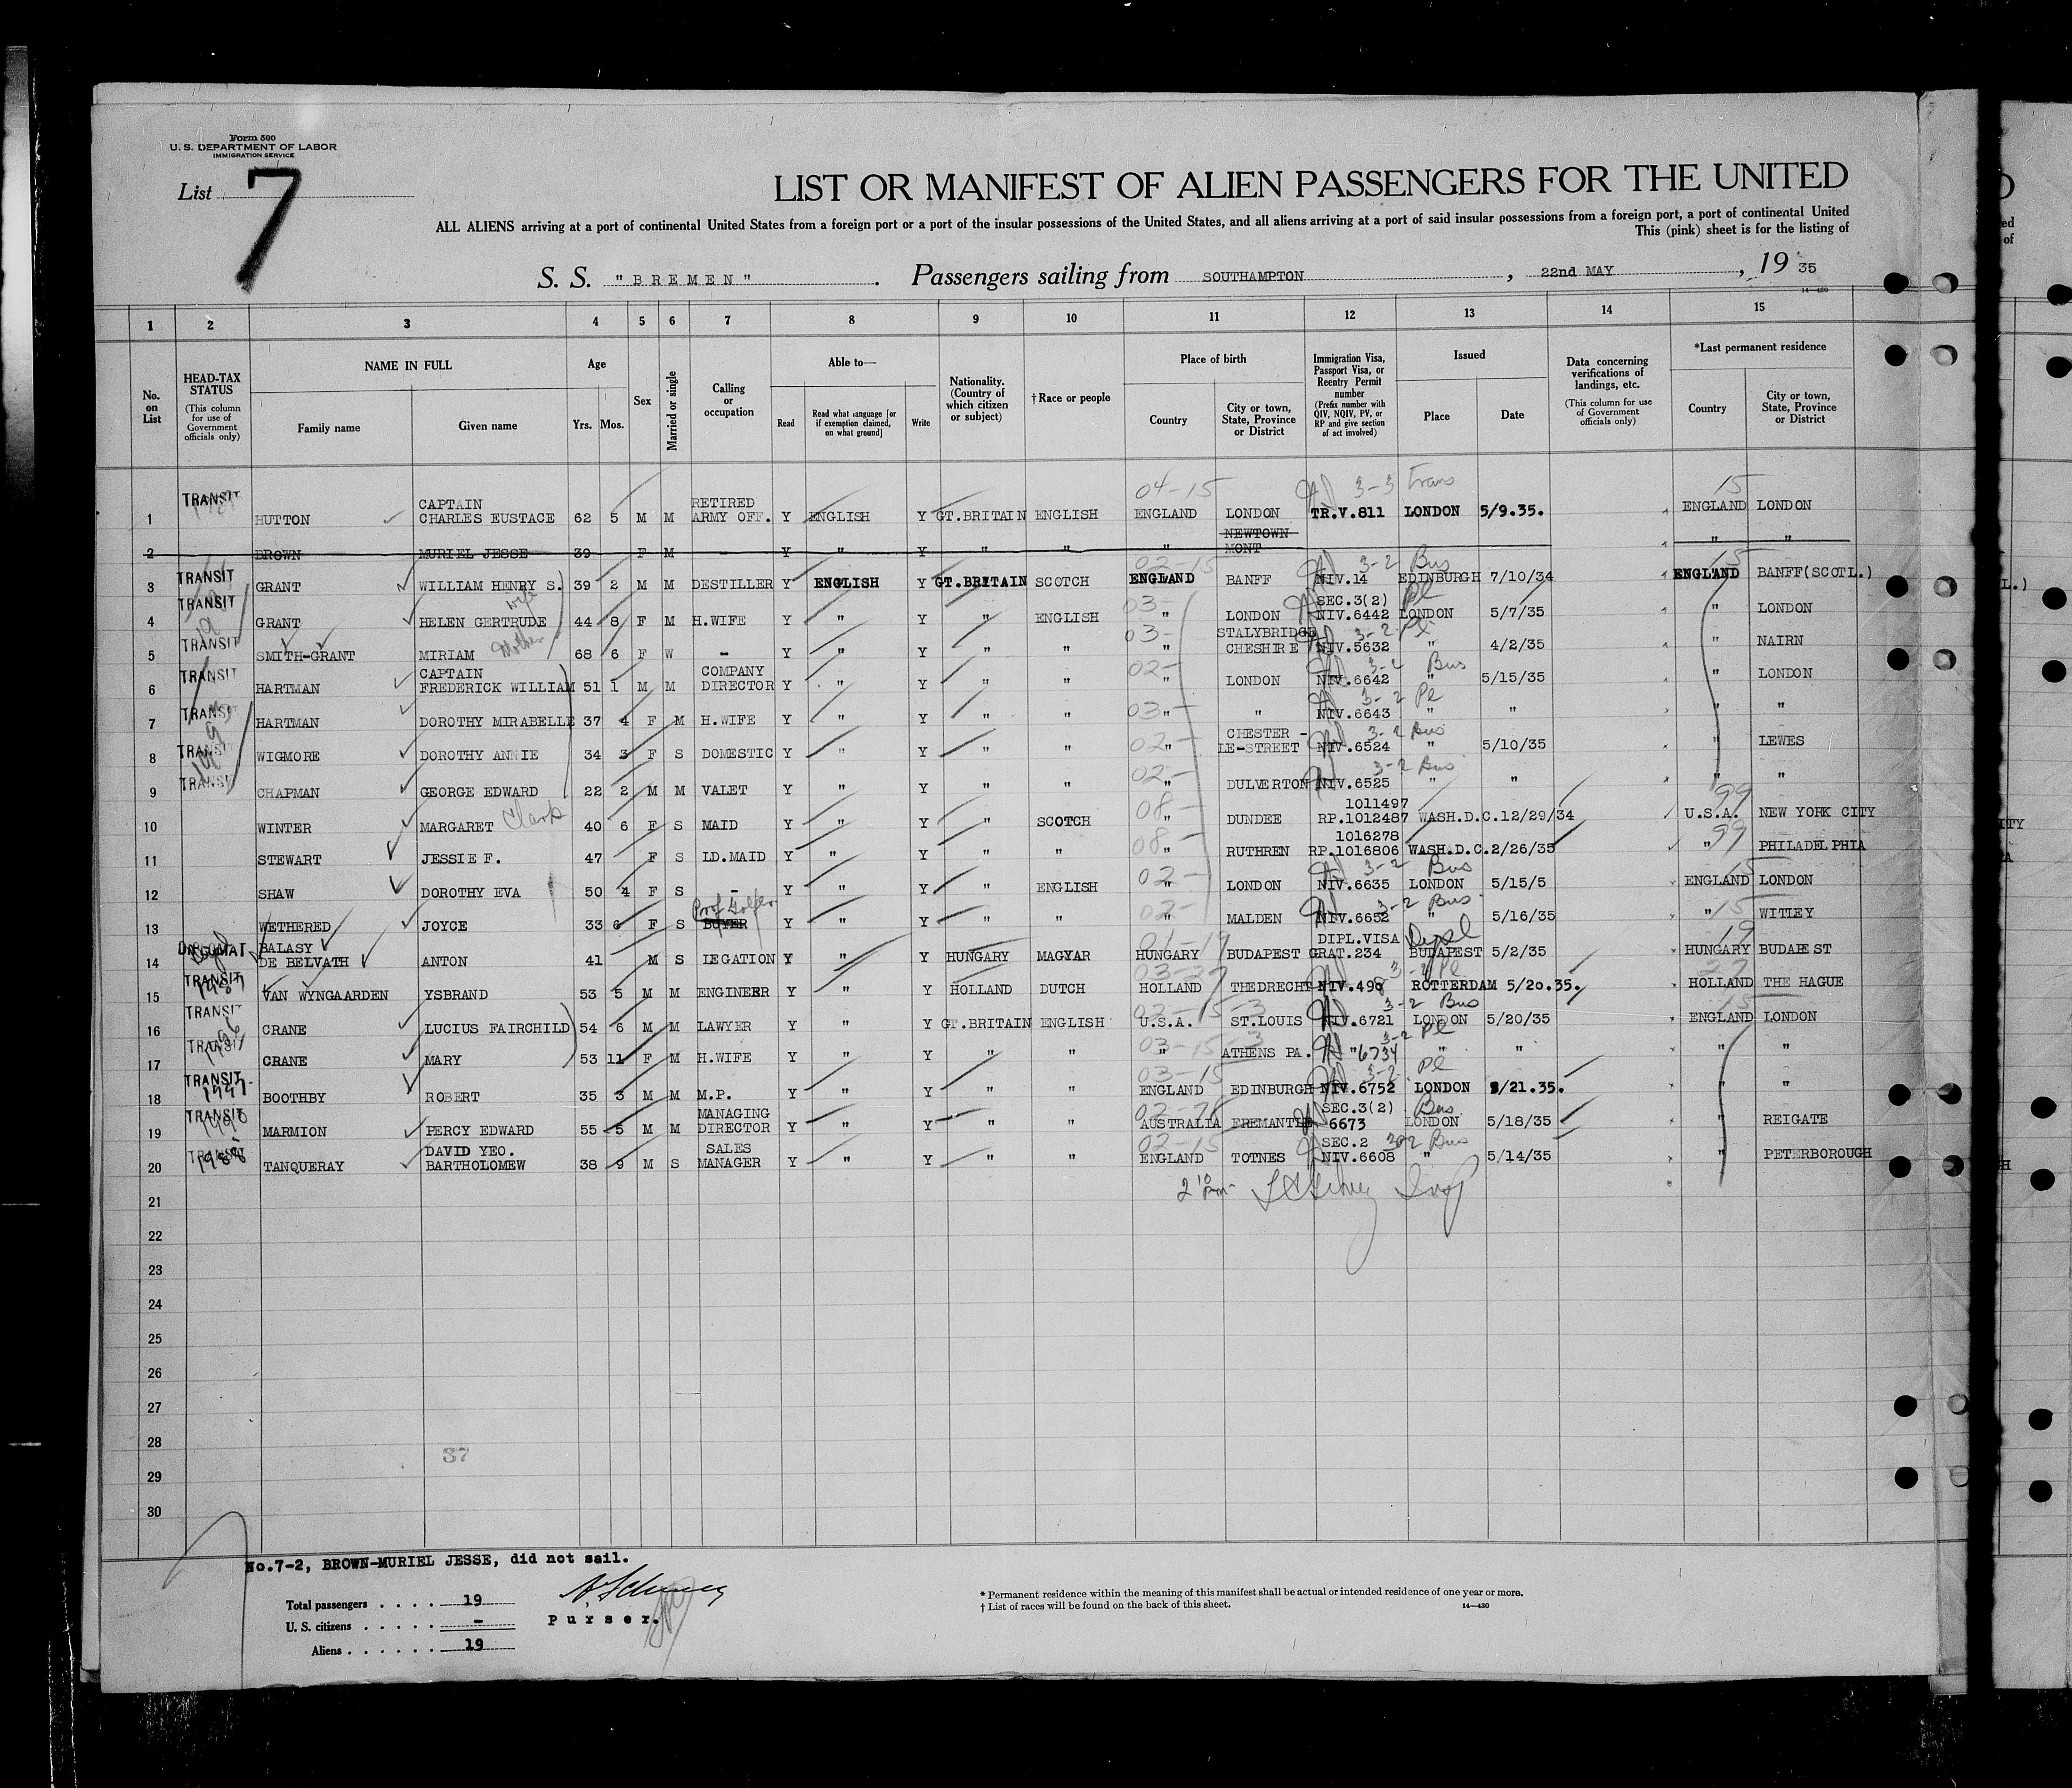 Form 500
U. S. DEPARTMENT OF LABOR
IMMIGRATION SERVICE
List 7
LIST OR MANIFEST OF ALIEN PASSENGERS FOR THE UNITED
ALL ALIENS arriving at a port of continental United States from a foreign port or a port of the insular possessions of the United States, and all aliens arriving at a port of said insular possessions from a foreign port, a port of continental United
This (pink) sheet is for the listing of
S. S. "BREMEN". Passengers sailing from SOUTHAMPTON, 22nd MAY, 19 35
14—430
1 2 3 4 5 6 7 8 9 10 11 12 13 14 15
No. on List
HEAD-TAX STATUS (This column for use of Government officials only)
NAME IN FULL Family name Given name
Age Yrs. Mos.
Sex
Married or single
Calling or occupation
Able to— Read Read what language [or if exemption claimed, on what ground] Write
Nationality. (Country of which citizen or subject)
† Race or people
Place of birth Country City or town, State, Province or District
Immigration Visa, Passport Visa, or Reentry Permit number (Prefix number with QIV, NQIV, PV, or RP and give section of act involved)
Issued Place Date
Data concerning verifications of landings, etc. (This column for use of Government officials only)
*Last permanent residence Country City or town, State, Province or District
1 TRANSIT HUTTON CAPTAIN CHARLES EUSTACE 62 5 M M RETIRED ARMY OFF. Y ENGLISH Y GT.BRITAIN ENGLISH 04-15 ENGLAND LONDON 3-3 Trans TR.V.811 LONDON 5/9.35. 15 ENGLAND LONDON
2 BROWN MURIEL JESSE 39 F M - Y " Y " " " NEWTOWN MONT " "
3 TRANSIT GRANT WILLIAM HENRY S. 39 2 M M DESTILLER Y ENGLISH Y GT.BRITAIN SCOTCH 02-15 ENGLAND BANFF 3-2 Bus NIV.14 EDINBURGH 7/10/34 15 ENGLAND BANFF(SCOTL.)
4 TRANSIT GRANT HELEN GERTRUDE wife 44 8 F M H.WIFE Y " Y " ENGLISH 03- " LONDON SEC.3(2) Pl NIV.6442 LONDON 5/7/35 " LONDON
5 TRANSIT SMITH-GRANT MIRIAM Mother 68 6 F W - Y " Y " " 03- " STALYBRIDGE CHESHIRE 3-2 Pl NIV.5632 " 4/2/35 " NAIRN
6 TRANSIT HARTMAN CAPTAIN FREDERICK WILLIAM 51 1 M M COMPANY DIRECTOR Y " Y " " 02- " LONDON 3-2 Bus NIV.6642 " 5/15/35 " LONDON
7 TRANSIT HARTMAN DOROTHY MIRABELLE 37 4 F M H.WIFE Y " Y " " 03- " " 3-2 Pl NIV.6643 " " " "
8 TRANSIT WIGMORE DOROTHY ANNIE 34 3 F S DOMESTIC Y " Y " " 02- " CHESTER - LE-STREET 3-2 Bus NIV.6524 " 5/10/35 " LEWES
9 TRANSIT CHAPMAN GEORGE EDWARD 22 2 M M VALET Y " Y " " 02- " DULVERTON 3-2 Bus NIV.6525 " " " "
10 WINTER MARGARET Clark 40 6 F S MAID Y " Y " SCOTCH 08- " DUNDEE 1011497 RP.1012487 WASH.D.C. 12/29/34 99 U.S.A. NEW YORK CITY
11 STEWART JESSIE F. 47 F S LD.MAID Y " Y " " 08- " RUTHREN 1016278 RP.1016806 WASH.D.C. 2/26/35 99 " PHILADELPHIA
12 SHAW DOROTHY EVA 50 4 F S - Y " Y " ENGLISH 02- " LONDON 3-2 Bus NIV.6635 LONDON 5/15/5 15 ENGLAND LONDON
13 WETHERED JOYCE 33 6 F S Prof Golfer BUYER Y " Y " " 02- " MALDEN 3-2 Bus NIV.6652 " 5/16/35 15 " WITLEY
14 DIPLOMAT BALASY DE BELVATH ANTON 41 M S LEGATION Y " Y HUNGARY MAGYAR 01-19 HUNGARY BUDAPEST DIPL.VISA GRAT.234 Dipl BUDAPEST 5/2/35 19 HUNGARY BUDAPEST
15 TRANSIT VAN WYNGAARDEN YSBRAND 53 5 M M ENGINEER Y " Y HOLLAND DUTCH 03-27 HOLLAND THEDRECHT 3-2 Pl NIV.498 ROTTERDAM 5/20.35. 27 HOLLAND THE HAGUE
16 TRANSIT CRANE LUCIUS FAIRCHILD 54 6 M M LAWYER Y " Y GT.BRITAIN ENGLISH 02-15-3 U.S.A. ST.LOUIS 3-2 Bus NIV.6721 LONDON 5/20/35 15 ENGLAND LONDON
17 TRANSIT CRANE MARY 53 11 F M H.WIFE Y " Y " " 03-15-3 " ATHENS PA. 3-2 Pl "6734 " " " "
18 TRANSIT BOOTHBY ROBERT 35 3 M M M.P. Y " Y " " 03-15 ENGLAND EDINBURGH 3-2 Pl NIV.6752 LONDON 5/21.35. " "
19 TRANSIT MARMION PERCY EDWARD 55 5 M M MANAGING DIRECTOR Y " Y " " AUSTRALIA FREMANTLE SEC.3(2) Bus 6673 LONDON 5/18/35 " REIGATE
20 TRANSIT 1988 TANQUERAY DAVID YEO. BARTHOLOMEW 38 9 M S SALES MANAGER Y " Y " " 02-15 ENGLAND TOTNES SEC.2 3-2 Bus NIV.6608 " 5/14/35 " PETERBOROUGH
21
22
23
24
25
26
27
28
29
30
37
No.7-2, BROWN-MURIEL JESSE, did not sail.
Total passengers . . . . 19
U. S. citizens . . . . . -
Aliens . . . . . . 19
Purser.
* Permanent residence within the meaning of this manifest shall be actual or intended residence of one year or more.
† List of races will be found on the back of this sheet.
14—430